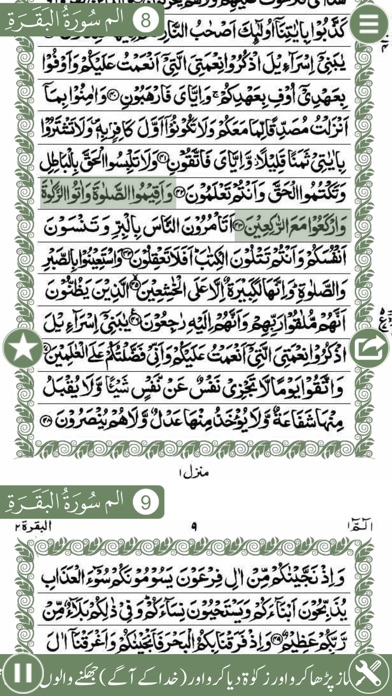 الم سُورَةُ البَقَرَةِ 8
كَذَّبُوْا بِاٰيٰتِنَآ اُولٰٓئِكَ اَصْحٰبُ النَّارِ
يٰبَنِيْٓ اِسْرَآءِيْلَ اذْكُرُوْا نِعْمَتِيَ الَّتِيْٓ اَنْعَمْتُ عَلَيْكُمْ وَاَوْفُوْا
بِعَهْدِيْٓ اُوْفِ بِعَهْدِكُمْ ۚ وَاِيَّايَ فَارْهَبُوْنِ ۝۴۰ وَاٰمِنُوْا بِمَآ
اَنْزَلْتُ مُصَدِّقًا لِّمَا مَعَكُمْ وَلَا تَكُوْنُوْٓا اَوَّلَ كَافِرٍۭ بِهٖ ۪ وَلَا تَشْتَرُوْا
بِاٰيٰتِيْ ثَمَنًا قَلِيْلًا ۡ وَّاِيَّايَ فَاتَّقُوْنِ ۝۴۱ وَلَا تَلْبِسُوا الْحَقَّ بِالْبَاطِلِ
وَتَكْتُمُوا الْحَقَّ وَاَنْتُمْ تَعْلَمُوْنَ ۝۴۲ وَاَقِيْمُوا الصَّلٰوةَ وَاٰتُوا الزَّكٰوةَ
وَارْكَعُوْا مَعَ الرّٰكِعِيْنَ ۝۴۳ اَتَاْمُرُوْنَ النَّاسَ بِالْبِرِّ وَتَنْسَوْنَ
اَنْفُسَكُمْ وَاَنْتُمْ تَتْلُوْنَ الْكِتٰبَ ؕ اَفَلَا تَعْقِلُوْنَ ۝۴۴ وَاسْتَعِيْنُوْا بِالصَّبْرِ
وَالصَّلٰوةِ ؕ وَاِنَّهَا لَكَبِيْرَةٌ اِلَّا عَلَى الْخٰشِعِيْنَ ۝۴۵ الَّذِيْنَ يَظُنُّوْنَ
اَنَّهُمْ مُّلٰقُوْا رَبِّهِمْ وَاَنَّهُمْ اِلَيْهِ رٰجِعُوْنَ ۝۴۶ يٰبَنِيْٓ اِسْرَآءِيْلَ
اذْكُرُوْا نِعْمَتِيَ الَّتِيْٓ اَنْعَمْتُ عَلَيْكُمْ وَاَنِّيْ فَضَّلْتُكُمْ عَلَى الْعٰلَمِيْنَ ۝۴۷
وَاتَّقُوْا يَوْمًا لَّا تَجْزِيْ نَفْسٌ عَنْ نَّفْسٍ شَيْـًٔا وَّلَا يُقْبَلُ
مِنْهَا شَفَاعَةٌ وَّلَا يُؤْخَذُ مِنْهَا عَدْلٌ وَّلَا هُمْ يُنْصَرُوْنَ ۝۴۸
منزل ۱
الم سُورَةُ البَقَرَةِ 9
الٓمّٓ ۱ ۹ البقرة ۲
وَاِذْ نَجَّيْنٰكُمْ مِّنْ اٰلِ فِرْعَوْنَ يَسُوْمُوْنَكُمْ سُوْٓءَ الْعَذَابِ
يُذَبِّحُوْنَ اَبْنَآءَكُمْ وَيَسْتَحْيُوْنَ نِسَآءَكُمْ ؕ وَفِيْ ذٰلِكُمْ بَلَآءٌ مِّنْ
رَّبِّكُمْ عَظِيْمٌ ۝۴۹ وَاِذْ فَرَقْنَا بِكُمُ الْبَحْرَ فَاَنْجَيْنٰكُمْ وَاَغْرَقْنَآ اٰلَ
ماز پڑھا کرو اور زکوٰۃ دیا کرو اور (خدا کے آگے) جھکنے والوں